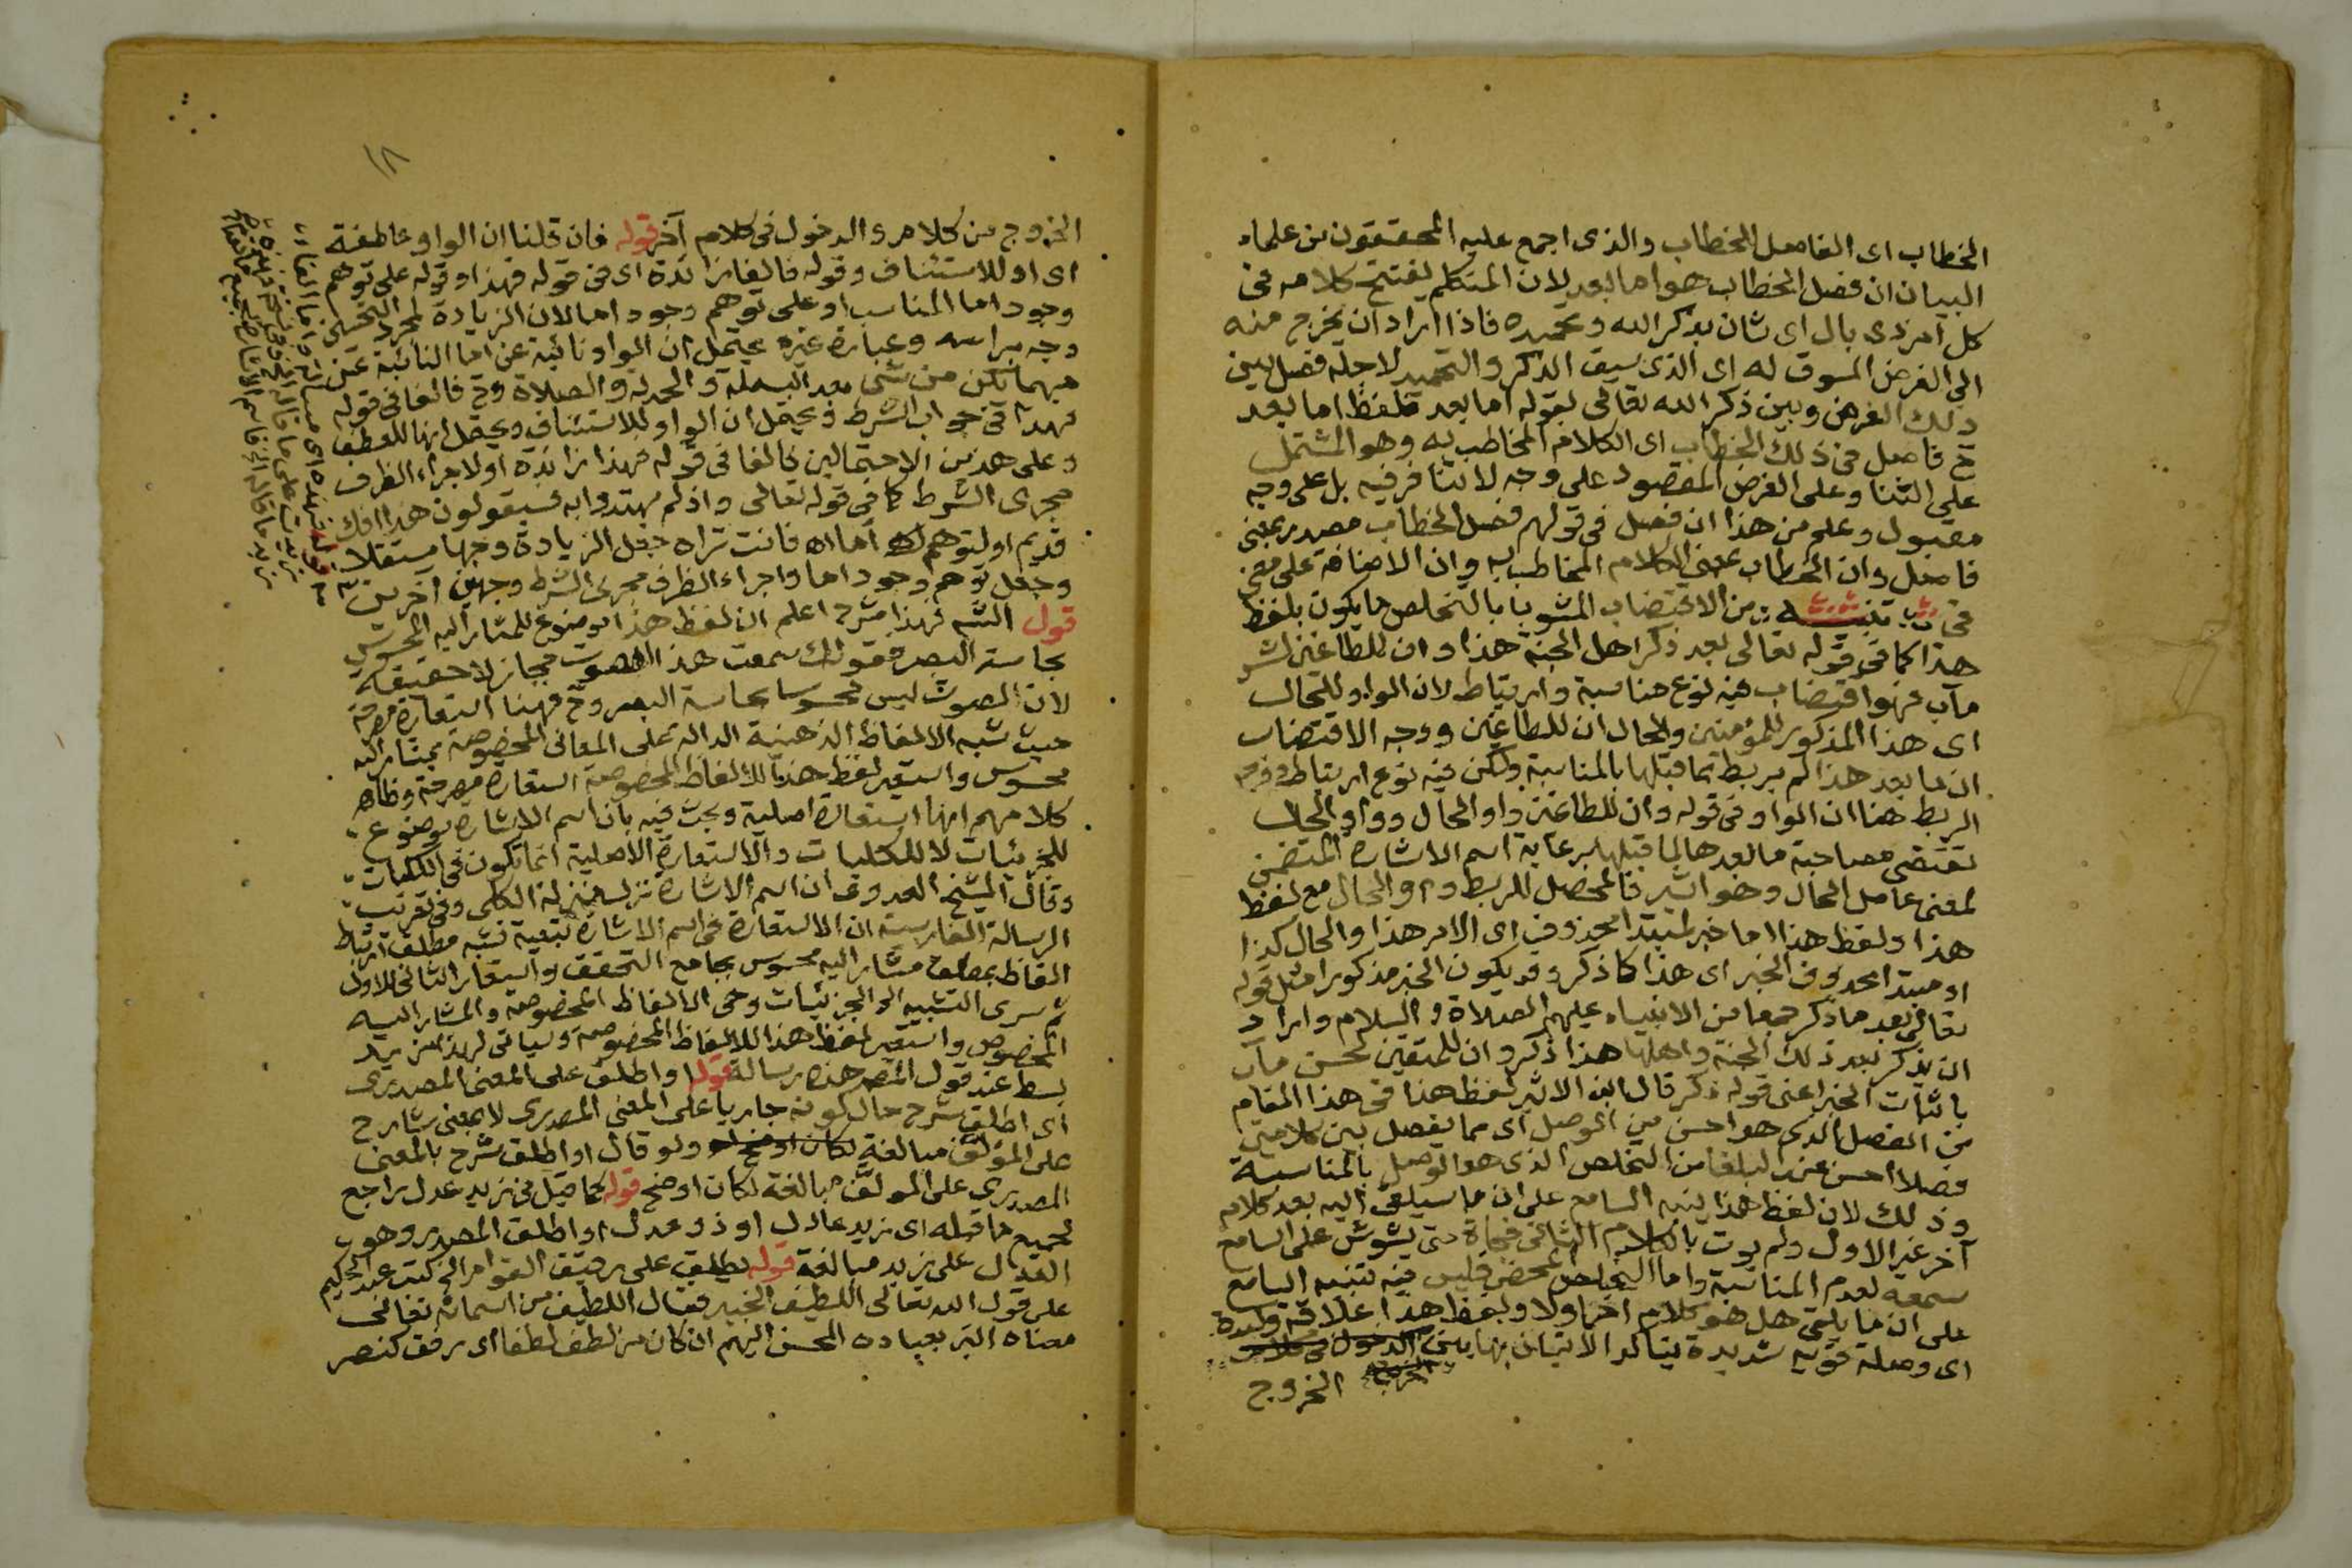 الخطاب اى الفاصل للخطاب والذى اجمع عليه المحققون من علماء
البيان ان فصل الخطاب هو اما بعد لان المتكلم يفتتح كلامه فى
كل امر ذى بال اى شان بذكر الله وتحميده فاذا اراد ان يخرج منه
الى الغرض المسوق له اى الذى سيق الذكر والتحميد لاجله فصل بين
ذلك الغرض وبين ذكر الله تعالى بقوله اما بعد فلفظ اما بعد
ح فاصل فى ذلك الخطاب اى الكلام المخاطب به وهو المشتمل
على الثنا وعلى الغرض المقصود على وجه لا تنافر فيه بل على وجه
مقبول وعلم من هذا ان فصل فى قولهم فصل الخطاب مصدر بمعنى
فاصل وان الخطاب بمعنى الكلام المخاطب به وان الاضافة على معنى
فى تنبيه من الاقتضاب المشوب بالتخلص ما يكون بلفظ
هذا كما فى قوله تعالى بعد ذكر اهل الجنة هذا وان للطاغين لشر
مآب فهو اقتضاب فيه نوع مناسبة وارتباط لان الواو للحال
اى هذا المذكور للمؤمنين والحال ان للطاغين ووجه الاقتضاب
ان ما بعد هذا لم يربط بما قبلها بالمناسبة ولكن فيه نوع ارتباط ووجه
الربط هنا ان الواو فى قوله وان للطاغين واو الحال وواو الحال
تقتضى مصاحبة ما بعدها لما قبلها برعاية اسم الاشارة المتضمن
لمعنى عامل الحال وهو اشير فالمحصل للربط واو الحال مع لفظ
هذا ولفظ هذا اما خبر لمبتدا محذوف اى الامر هذا والحال كذا
او مبتدا محذوف الخبر اى هذا كما ذكر وقد يكون الخبر مذكورا مثل قوله
تعالى بعد ما ذكر جمعا من الانبياء عليهم الصلاة والسلام واراد
ان يذكر بعد ذلك الجنة واهلها هذا ذكر وان للمتقين لحسن مآب
باثبات الخبر اعنى قوله ذكر قال ابن الاثير لفظ هذا فى هذا المقام
من الفصل الذى هو احسن من الوصل اى مما يفصل بين كلامين
فصلا احسن عند البلغا من التخلص الذى هو الوصل بالمناسبة
وذلك لان لفظ هذا ينبه السامع على ان ما سيلقى اليه بعد كلام
آخر غير الاول ولم يؤت بالكلام الثانى فجاة حتى يشوش على السامع
سمعه لعدم المناسبة واما التخلص المحض فليس فيه تنبيه السامع
على ان ما يلقى هل هو كلام اخر اولا ولفظ هذا علاقة وكيدة
اى وصلة قوية شديدة يتاكد الاتيان بها بين
الخروج
١٨
الخروج من كلام والدخول فى كلام آخر قوله فان قلنا ان الواو عاطفة
اى او للاستئناف وقوله فالفا زائدة اى فى قوله فهذا وقوله على توهم
وجود اما المناسب او على توهم وجود اما لان الزيادة لمجرد التحسين
وجه براسه وعبارة غيره يحتمل ان الواو نائبة عن اما النائبة عن
مهما يكن من شئ بعد البسملة والحمدلة والصلاة وح فالفا فى قوله
فهذا فى جواب الشرط ويحتمل ان الواو للاستئناف ويحتمل انها للعطف
وعلى هذين الاحتمالين فالفا فى قوله فهذا زائدة او لاجراء الظرف
مجرى الشرط كما فى قوله تعالى واذ لم يهتدوا به فسيقولون هذا افك
قديم او لتوهم اما اه فانت تراه جعل الزيادة وجها مستقلا
وجعل توهم وجود اما واجراء الظرف مجرى الشرط وجهين اخرين
قول الشه فهذا شرح اعلم ان لفظ هذا موضوع للمشار اليه المحسوس
بحاسة البصر فقولك سمعت هذا الصوت مجاز لا حقيقة
لان الصوت ليس محسوسا بحاسة البصر وح فهنا استعارة مصرحة
حيث شبه الالفاظ الذهنية الدالة على المعانى المخصوصة بمشار اليه
محسوس واستعير لفظ هذا للالفاظ المخصوصة استعارة مصرحة وظاهر
كلامهم انها استعارة اصلية وبحث فيه بان اسم الاشارة موضوع
للجزئيات لا للكليات والاستعارة الاصلية انما تكون فى الكليات
وقال الشيخ العدوى ان اسم الاشارة نزل منزلة الكلى وفى تعريب
الرسالة الفارسية ان الاستعارة فى اسم الاشارة تبعية تشبه مطلق ارتباط
الفاظ بمطلق مشار اليه محسوس بجامع التحقق واستعار الثانى للاول
ثم سرى التشبيه الى الجزئيات وهى الالفاظ المخصوصة والمشار اليه
المخصوص واستعير لفظ هذا للالفاظ المخصوصة وسياتى لهذا مزيد
بسط عند قول المصه هذه رسالة قوله واطلق على المعنى المصدرى
اى اطلق شرح حال كونه جاريا على المعنى المصدرى لا بمعنى شارح
على المؤلف مبالغة ولو قال او اطلق شرح بالمعنى
المصدرى على المولف مبالغة لكان اوضح قوله كما قيل فى زيد عدل راجع
لجميع ما قبله اى زيد عادل او ذو عدل او اطلق المصدر وهو
العدل على زيد مبالغة قوله يطلق على رقيق القوام الخ كتب عبد الحكيم
على قول الله تعالى اللطيف الخبير فقال اللطيف من اسمائه تعالى
معناه البر بعباده المحسن اليهم ان كان من لطف لطفا اى رفق كنصر